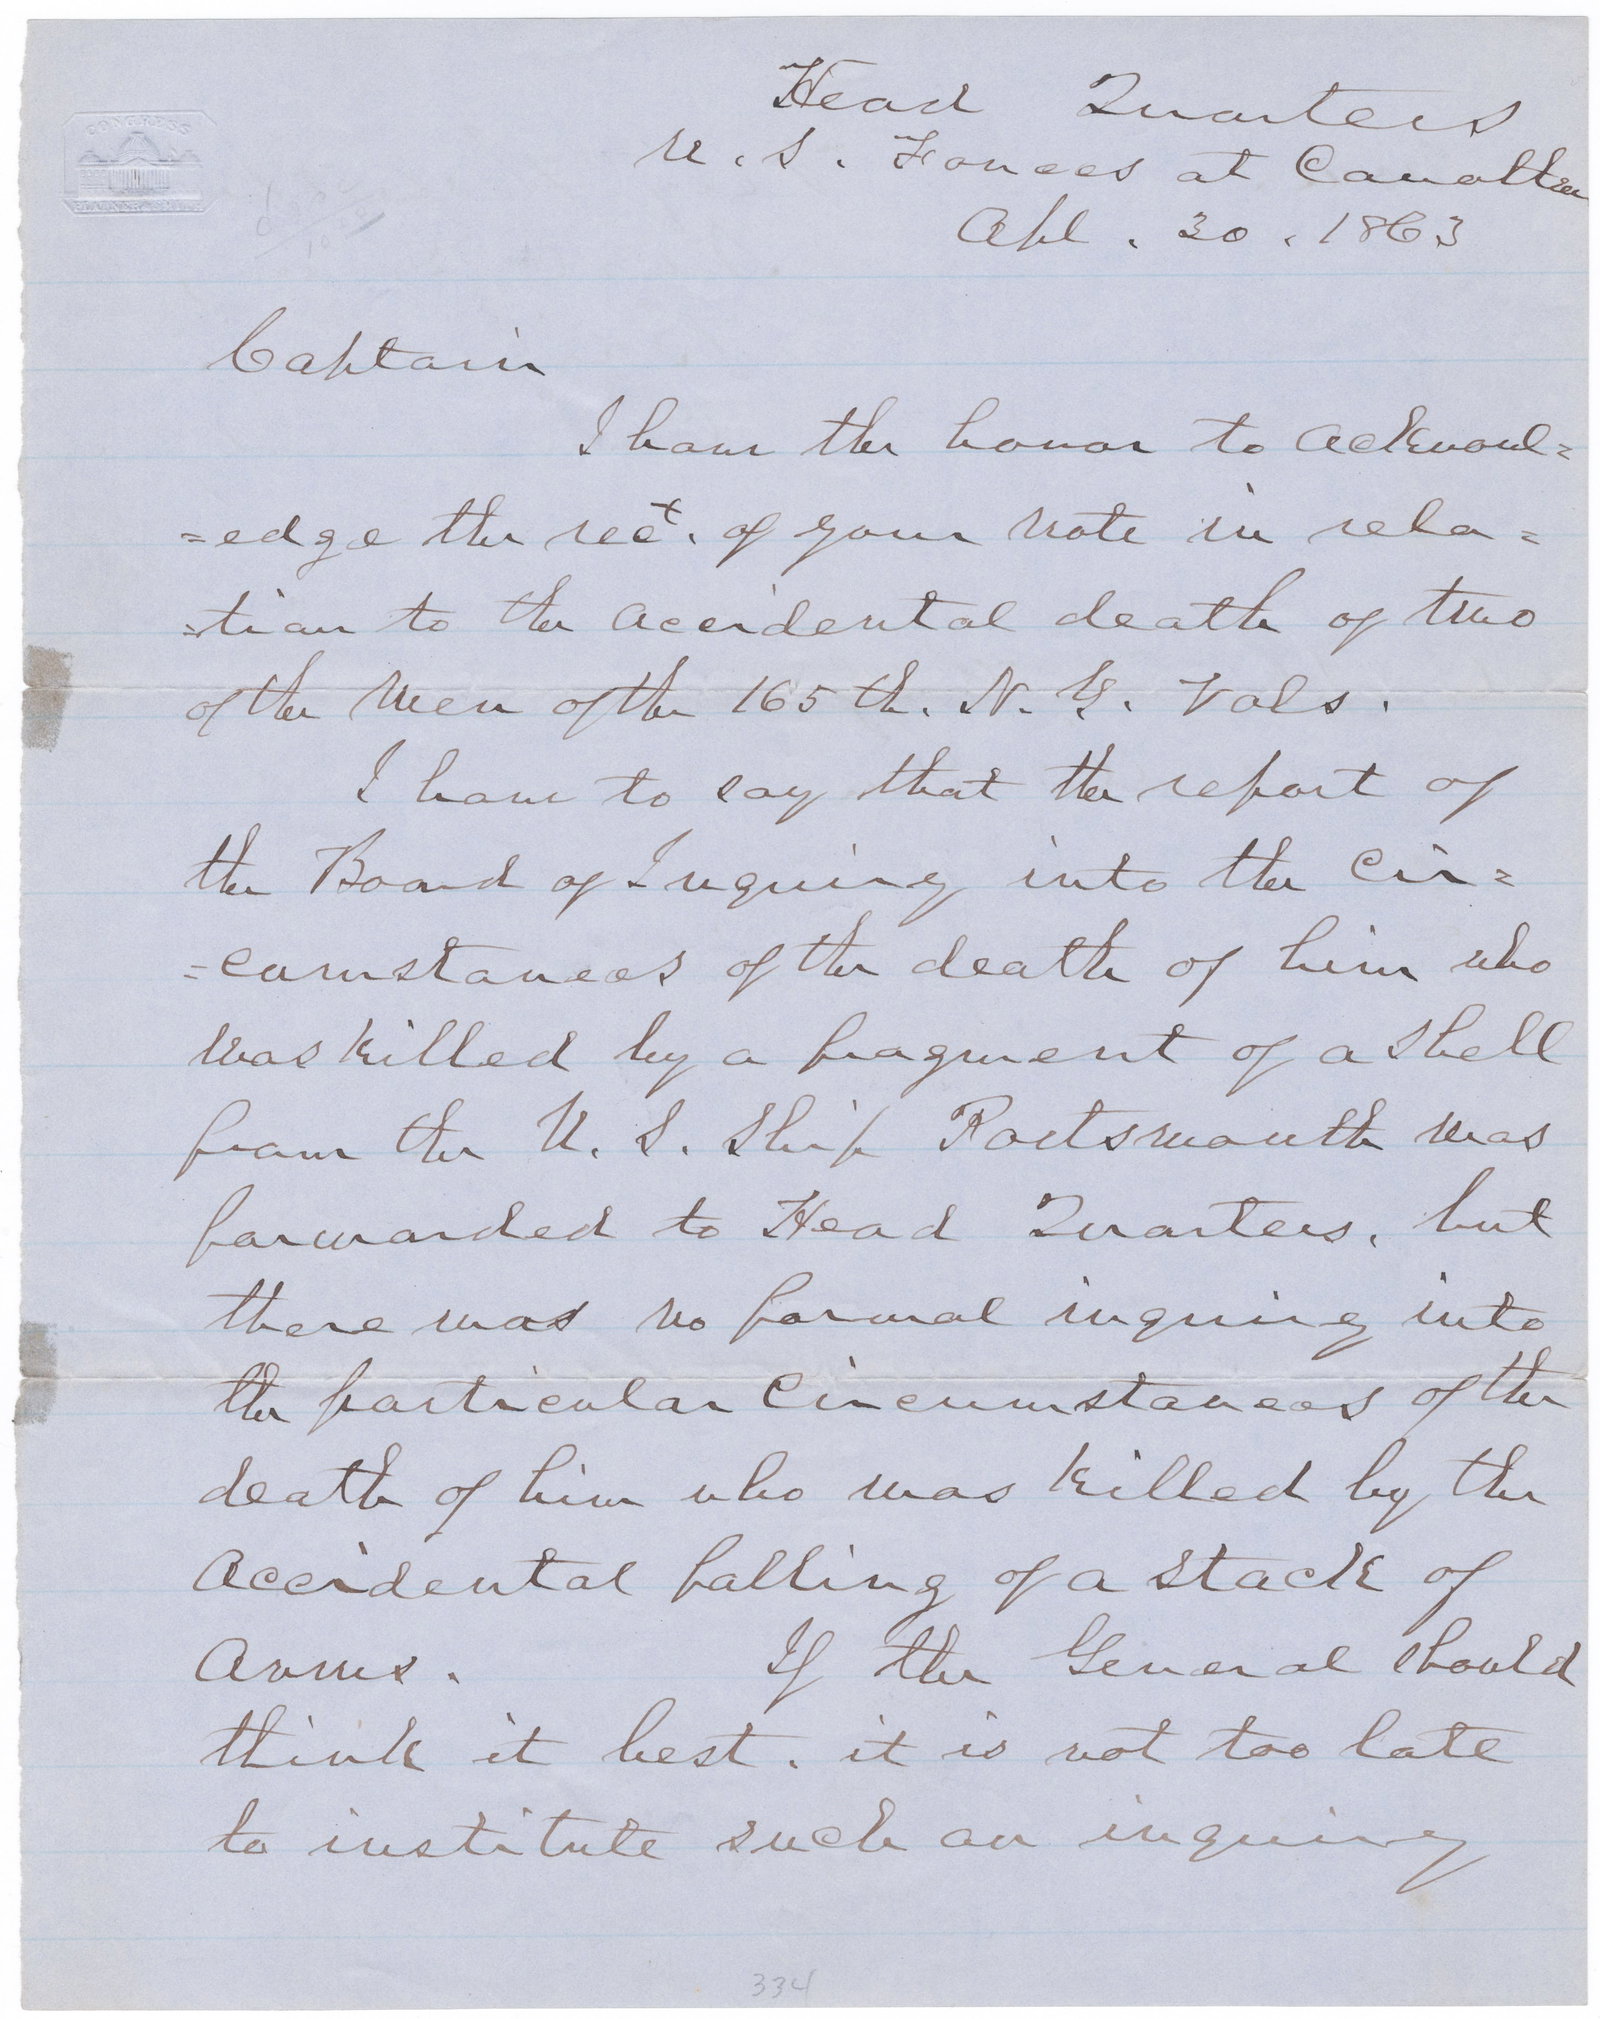 CONGRESS
Head Quarters
U. S. Forces at Carrollton
Apl. 30. 1863
Captain
I have the honor to acknowl=
=edge the rect. of your note in rela=
=tion to the accidental death of two
of the men of the 165th. N. Y. Vols.
I have to say that the report of
the Board of Inquiry into the cir=
=cumstances of the death of him who
was killed by a fragment of a shell
from the U. S. Ship Portsmouth was
forwarded to Head Quarters, but
there was no formal inquiry into
the particular circumstances of the
death of him who was killed by the
accidental falling of a stack of
arms. If the General should
think it best, it is not too late
to institute such an inquiry
334